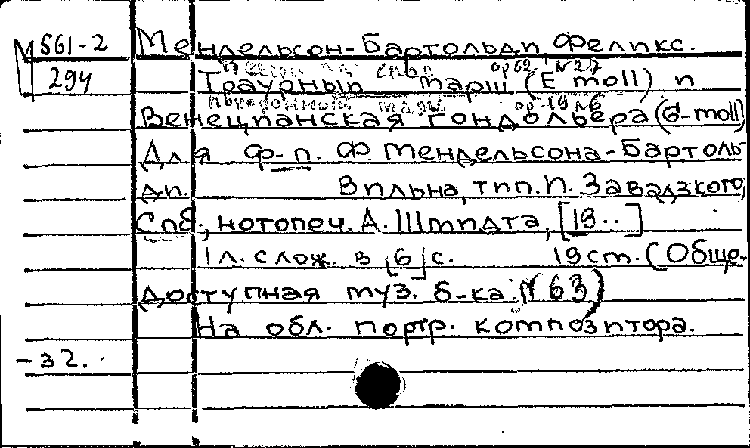 М 561-2
294
Мендельсон-Бартольди Феликс.
ор62 N27
Траурный марш (E moll) и
ор.19 N6
Венецианская гондольера (G-moll)
Для ф-п. Ф Мендельсона-Бартоль-
ди. Вильна, тип. И. Завадзкого,
Спб, нотопеч. А. Штпидта, [19..]
1 л. слож. в [6] с. 19 см. (Обще-
доступная муз. б-ка. N 63)
На обл. портр. композитора.
-32.